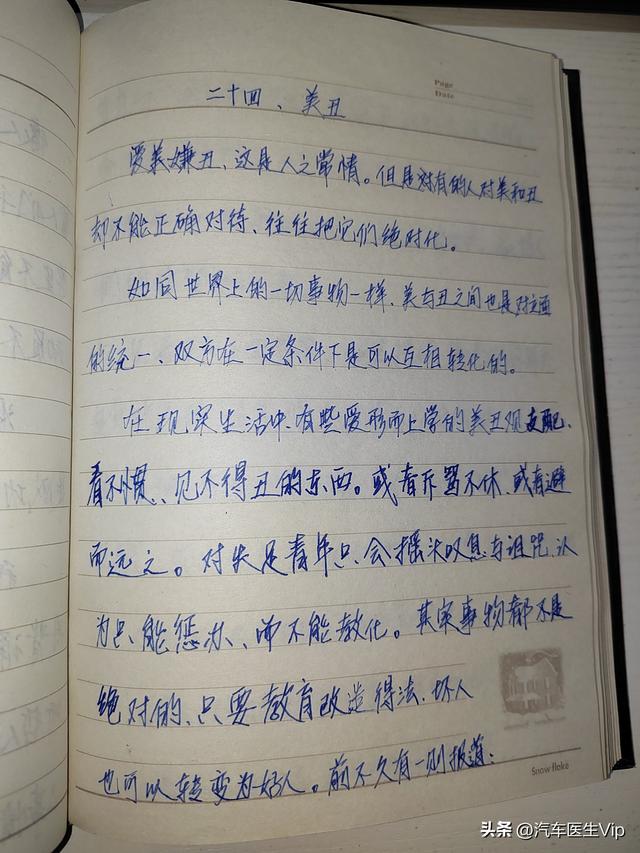 Page
Date
二十四、美丑
爱美嫌丑,这是人之常情。但是对有的人对美和丑
却不能正确对待、往往把它们绝对化。
如同世界上的一切事物一样、美与丑之间也是对立面
的统一、双方在一定条件下是可以互相转化的。
在现实生活中、有些受形而上学的美丑观支配、
看不惯、见不得丑的东西。或者斥骂不休、或者避
而远之。对失足青年只会摇头叹息与诅咒、认
为只能惩办、而不能教化。其实事物都不是
绝对的、只要教育改造得法、坏人
也可以转变为好人。前不久有一则报道:
Snow flake
头条 @汽车医生Vip